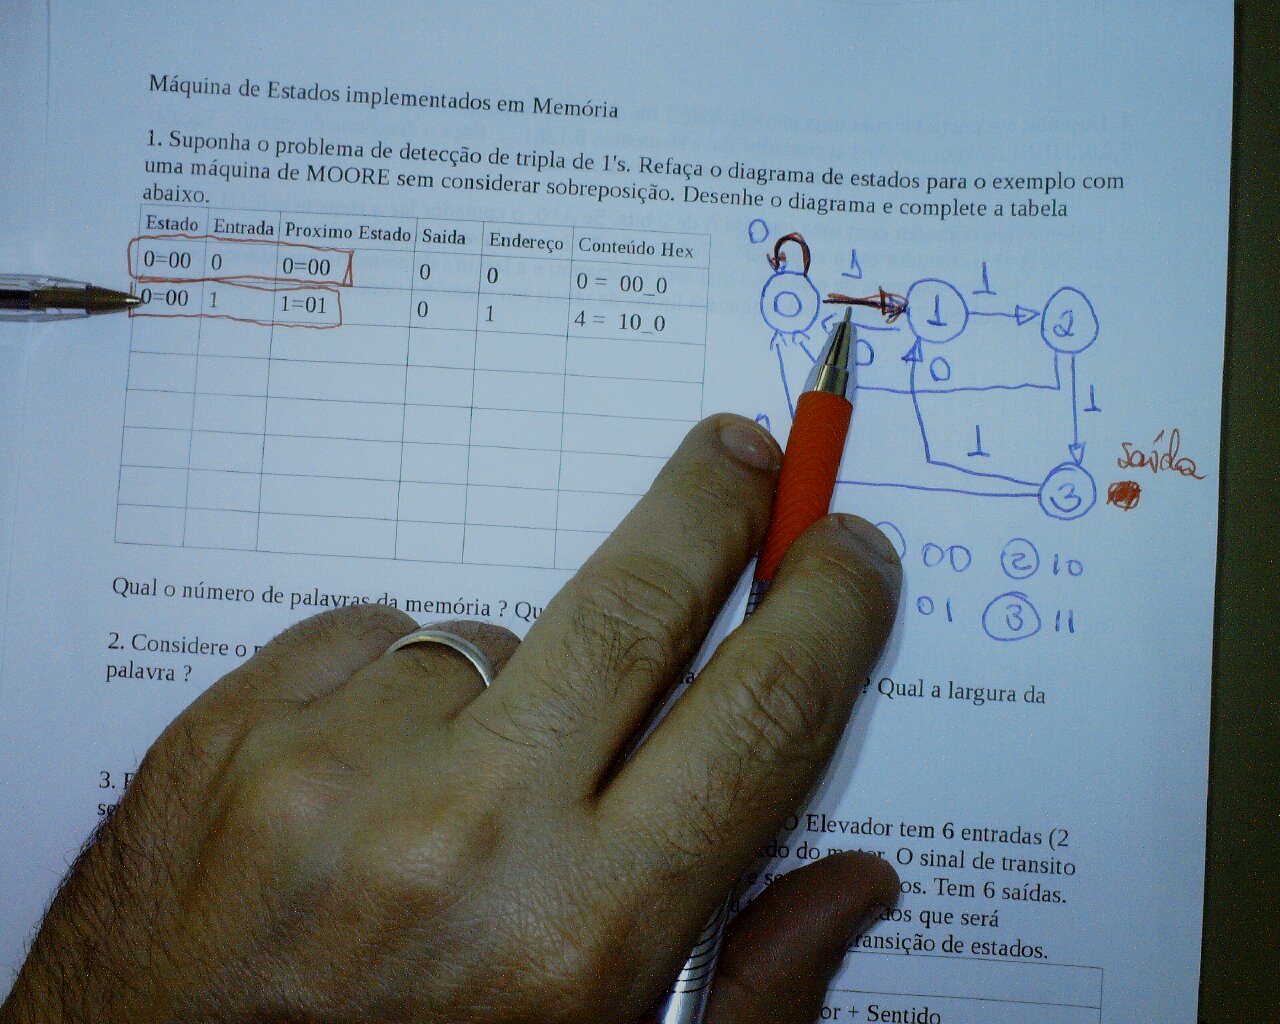 Máquina de Estados implementados em Memória
1. Suponha o problema de detecção de tripla de 1's. Refaça o diagrama de estados para o exemplo com
uma máquina de MOORE sem considerar sobreposição. Desenhe o diagrama e complete a tabela
abaixo.
Estado Entrada Proximo Estado Saida Endereço Conteúdo Hex
0=00 0 0=00 0 0 0 = 00_0
0=00 1 1=01 0 1 4 = 10_0
0
1
1
0
1
2
0
0
1
1
3
saída
00 2 10
01 3 11
Qual o número de palavras da memória ?
2. Considere o ? Qual a largura da
palavra ?
3.
O Elevador tem 6 entradas (2
do motor. O sinal de transito
Tem 6 saídas.
que será
transição de estados.
+ Sentido